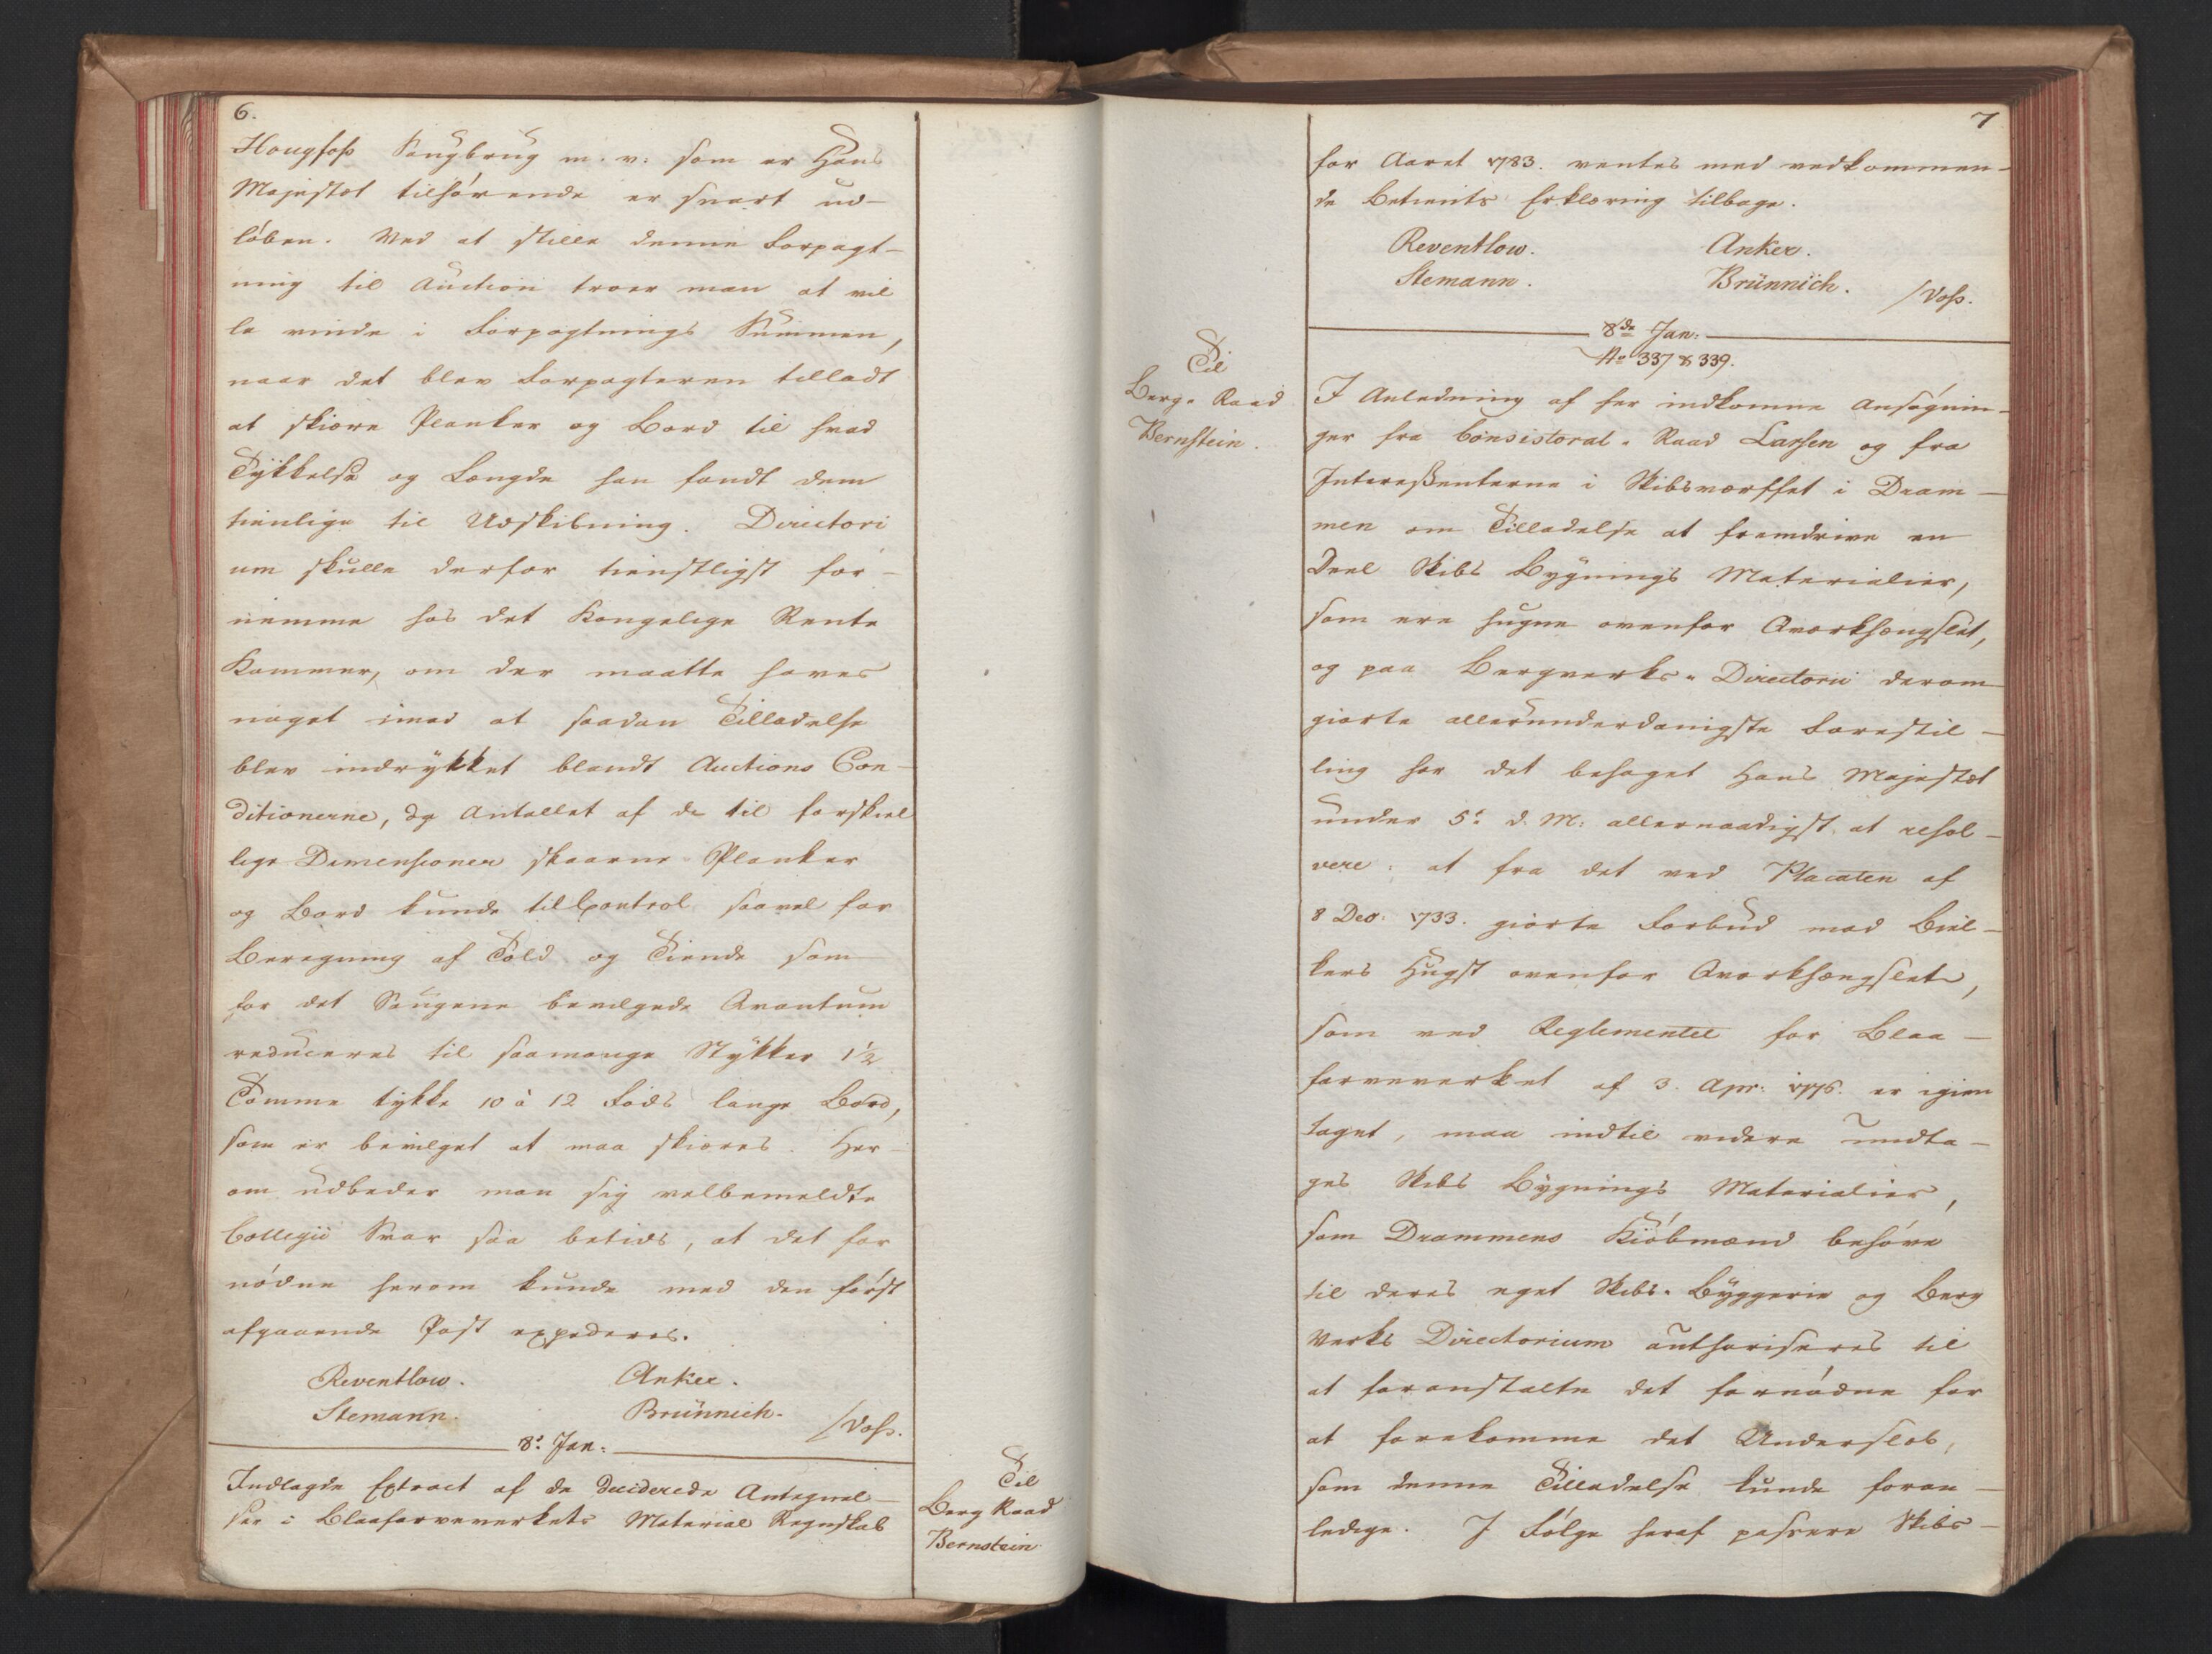 6.
Hougfoss Saugbrug m. v: som er Hans
Majestæt tilhørende er snart ud-
løben. Ved at stille denne Forpagt-
ning til Auction troer man at vil
le vinde i Forpagtnings Summen,
naar det blev Forpagteren tilladt
at skiære Planker og Bord til hvad
Tÿkkelse og Længde han fandt dem
tienlige til Udskibning. Directori
um skulle derfor tienstligst for-
nemme hos det Kongelige Rente
Kammer, om der maatte haves
noget imod at saadan Tilladelse
blev indrÿkket blandt Auctions Con-
ditionerne, og Antallet af de til forskiel
lige Dimensioner skaarne Planker
og Bord kunde til Control saavel for
Beregning af Told og Tiende som
for det Saugene bevilgede Qvantum
reduceres til saamange Stÿkker 1½
Tomme tykke 10 à 12 Fods lange Bord,
som er bevilget at maa skiæres. Her-
om udbeder man sig velbemeldte
Collegii Svar saa betids, at det for
nødne herom kunde med den først
afgaaende Post expederes.
Reventlow. Anker.
Stemann. Brünnich. /Voss.
8de Jan:
Indlagde Extract af de deciderede Antegnel-
ser i Blaafarveverkets Material Regnskab
Til
Berg Raad
Bernstein
7
for Aaret 1783. ventes med vedkommen-
de Betients Erklæring tilbage.
Reventlow. Anker.
Stemann. Brünnich. /Voss.
8de Jan:
No 337 & 339.
Til
Berg-Raad
Bernstein.
I Anledning af her indkomne Ansøgnin-
ger fra Consistoral-Raad Larsen og fra
Interessenterne i Skibsværftet i Dram-
men om Tilladelse at fremdrive en
Deel Skibs Bÿgnings Materialier,
som ere hugne ovenfor Qværkhængslet,
og paa Bergverks-Directorii derom
giorte allerunderdanigste Forestil-
ling har det behaget Hans Majestæt
under 5te d. M: allernaadigst at resol-
vere: at fra det ved Placaten af
8 Dec: 1733. giorte Forbud mod Biel-
kers Hugst ovenfor Qværkhængslet,
som ved Reglementet for Blaa-
farveverket af 3. Apr: 1776. er igien
taget, maa indtil videre undta-
ges Skibs Bÿgnings Materialier,
som Drammens Kiøbmænd behøve
til deres eget Skibs-Bÿggerie og Berg
Verks Directorium authoriseres til
at foranstalte det fornødne for
at forekomme det Underslæb,
som denne Tilladelse kunde foran-
ledige. I Følge heraf passere Skibs-